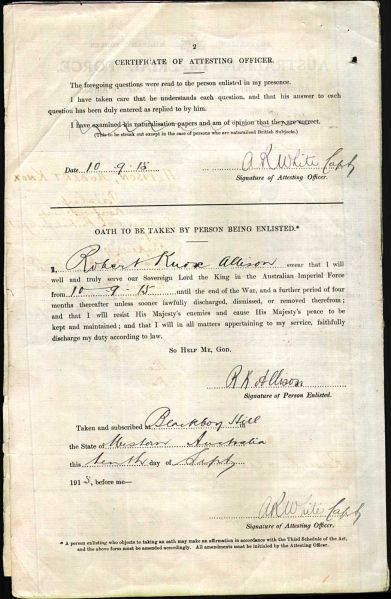 2
CERTIFICATE OF ATTESTING OFFICER.
The foregoing questions were read to the person enlisted in my presence.
I have taken care that he understands each question, and that his answer to each
question has been duly entered as replied to by him.
I have examined his naturalisation papers and am of opinion that they are correct.
(This to be struck out except in the case of persons who are naturalised British Subjects.)
Date 10-9-15
A R White Capt
Signature of Attesting Officer.
OATH TO BE TAKEN BY PERSON BEING ENLISTED.*
I, Robert Knox Allison swear that I will
well and truly serve our Sovereign Lord the King in the Australian Imperial Force
from 10-9-15 until the end of the War, and a further period of four
months thereafter unless sooner lawfully discharged, dismissed, or removed therefrom; and
that I will resist His Majesty's enemies and cause His Majesty's peace to be
kept and maintained; and that I will in all matters appertaining to my service, faithfully
discharge my duty according to law.
SO HELP ME, GOD.
R K Allison
Signature of Person Enlisted.
Taken and subscribed at Blackboy Hill
the State of Western Australia
this tenth day of Sept
1915, before me—
A R White Capt
Signature of Attesting Officer.
* A person enlisting who objects to taking an oath may make an affirmation in accordance with the Third Schedule of the Act,
and the above form must be amended accordingly. All amendments must be initialed by the Attesting Officer.